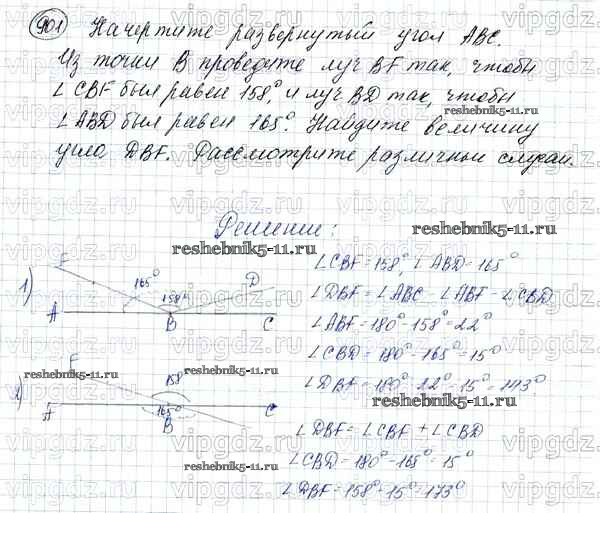 901 Начертите развернутый угол ABC.
Из точки B проведите луч BF так, чтобы
∠ CBF был равен 158°, и луч BD так, чтобы
∠ ABD был равен 165°. Найдите величину
угла DBF. Рассмотрите различные случаи.
Решение:
reshebnik5-11.ru
1)
F
165°
158°
D
A
B
C
∠ CBF = 158°, ∠ ABD = 165°
reshebnik5-11.ru
∠ DBF = ∠ ABC - ∠ ABF - ∠ CBD
∠ ABF = 180° - 158° = 22°
∠ CBD = 180° - 165° = 15°
∠ DBF = 180° - 22° - 15° = 143°
reshebnik5-11.ru
reshebnik5-11.ru
2)
F
158
reshebnik5-11.ru
A
165°
B
C
reshebnik5-11.ru
∠ DBF = ∠ CBF + ∠ CBD
∠ CBD = 180° - 165° = 15°
∠ DBF = 158° + 15° = 173°
vipgdz.ru